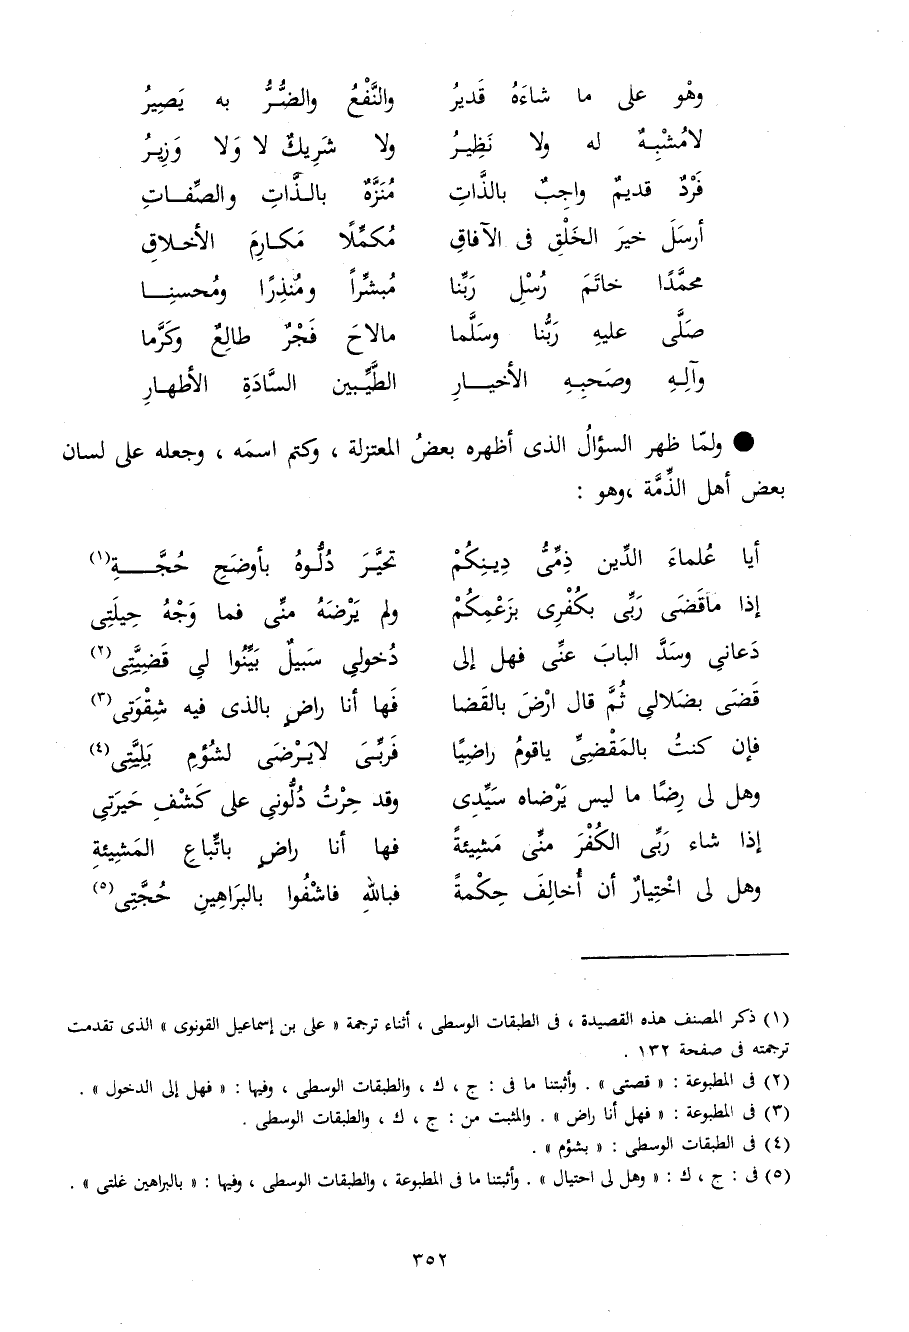 وهْو على ما شاءَهُ قَديرُ والنَّفْعُ والضُّرُّ به يَصِيرُ
لامُشْبِهٌ له ولا نَظِيرُ ولا شَرِيكٌ لا وَلا وَزِيرُ
فَرْدٌ قديمٌ واجِبٌ بالذَّاتِ مُنَزَّهٌ بالذَّاتِ والصِّفاتِ
أرسَلَ خيرَ الخَلْقِ فى الآفاقِ مُكمِّلًا مَكارِمَ الأخلاقِ
محمَّدًا خاتَمَ رُسْلِ رَبِّنا مُبشِّراً ومُنذِرًا ومُحسنِا
صَلَّى عليهِ رَبُّنا وسَلَّما مالاحَ فَجْرٌ طالِعٌ وكَرَّما
وآلِهِ وصَحبِهِ الأخيارِ الطَّيِّبين السَّادَةِ الأطهارِ
● ولمّا ظهر السؤالُ الذى أظهره بعضُ المعتزلة ، وكتم اسمَه ، وجعله على لسان
بعض أهل الذِّمَّة ،وهو :
أيا عُلماءَ الدِّين ذِمِّىُّ دِينِكُمْ تحيَّرَ دُلُّوهُ بأوضَحِ حُجَّةِ(١)
إذا ماقَضَى رَبِّى بكُفْرِى بزَعْمِكُمْ ولم يَرْضَهُ منِّى فما وَجْهُ حِيلَتِى
دَعاني وسَدَّ البابَ عنِّى فهل إلى دُخولي سَبيلٌ بَيِّنُوا لي قَضِيَّتِى(٢)
قَضَى بضَلالي ثُمَّ قال ارْضَ بالقَضا فَها أنا راضٍ بالذى فيه شِقْوَتى(٣)
فإن كنتُ بالمَقْضِىِّ ياقومُ راضِيًا فَربِّىَ لايَرْضَى لشُؤْمِ بَلِيَّتِى(٤)
وهل لى رِضًا ما ليس يَرْضاه سَيِّدِى وقد حِرْتُ دُلُّوني على كَشْفِ حَيرَتِي
إذا شاء رَبِّى الكُفْرَ منِّى مَشِيئةً فها أنا راضٍ باتِّباعِ المَشِيئةِ
وهل لى اخْتِيارٌ أن أُخالِفَ حِكْمةً فباللهِ فاشْفُوا بالبَراهِينِ حُجَّتِى(٥)
(١) ذكر المصنف هذه القصيدة ، فى الطبقات الوسطى ، أثناء ترجمة « على بن إسماعيل القونوى » الذى تقدمت
ترجمته فى صفحة ١٣٢ .
(٢) فى المطبوعة : « قصتى » . وأثبتنا ما فى : ج ، ك ، والطبقات الوسطى ، وفيها : « فهل إلى الدخول » .
(٣) فى المطبوعة : « فهل أنا راض » . والمثبت من : ج ، ك ، والطبقات الوسطى .
(٤) فى الطبقات الوسطى : « بشؤم » .
(٥) فى : ج ، ك : « وهل لى احتيال » . وأثبتنا ما فى المطبوعة ، والطبقات الوسطى ، وفيها : « بالبراهين غلتى » .
٣٥٢